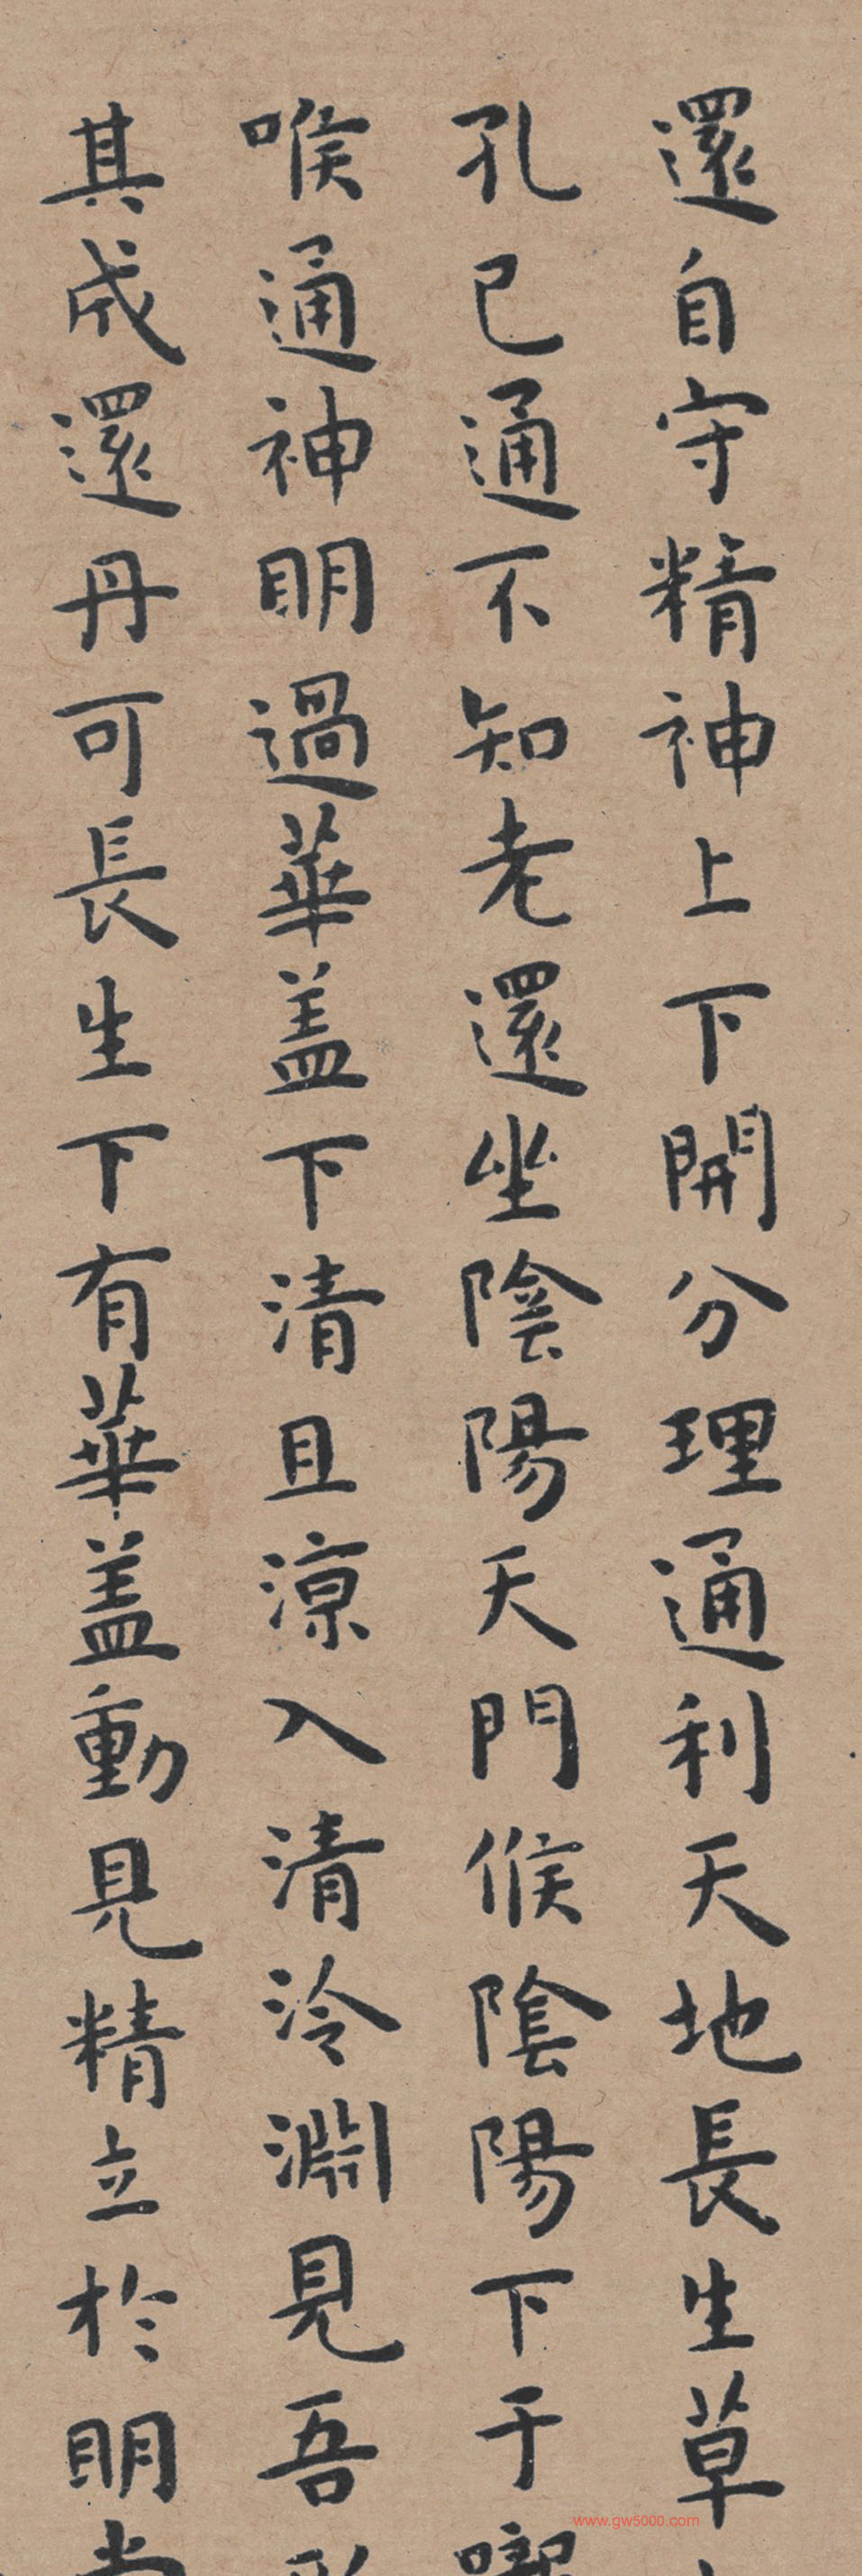 還自守精神上下開分理通利天地長生草
孔已通不知老還坐陰陽天門候陰陽下于
喉通神明過華盖下清且涼入清泠淵見吾
其成還丹可長生下有華盖動見精立於明
www.gw5000.com